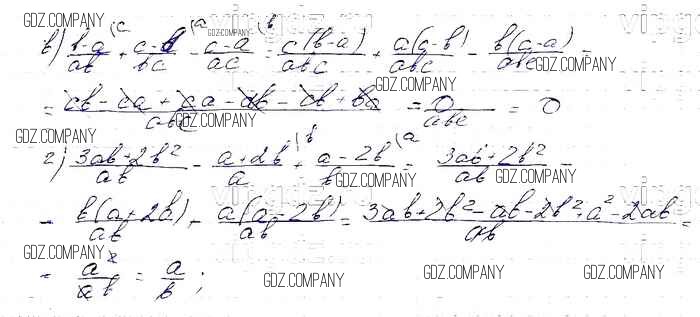 GDZ.COMPANY
в) (b-a)/ab \c + (c-b)/bc \a - (c-a)/ac \b = c(b-a)/abc + a(c-b)/abc - b(c-a)/abc =
GDZ.COMPANY GDZ.COMPANY GDZ.COMPANY
= (cb - ca + ca - ab - cb + ba)/abc = 0/abc = 0
GDZ.COMPANY GDZ.COMPANY GDZ.COMPANY
г) (3ab+2b²)/ab - (a+2b)/a \b + (a-2b)/b \a = (3ab+2b²)/ab -
GDZ.COMPANY GDZ.COMPANY
- b(a+2b)/ab + a(a-2b)/ab = (3ab+2b²-ab-2b²+a²-2ab)/ab =
GDZ.COMPANY GDZ.COMPANY
= a²/ab = a/b;
GDZ.COMPANY GDZ.COMPANY GDZ.COMPANY